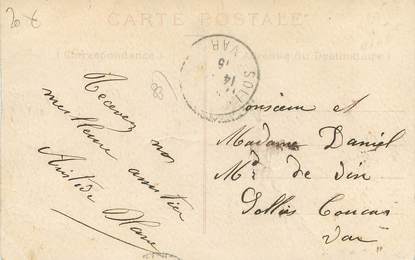 CARTE POSTALE
Correspondance
Adresse du Destinataire
SOLL
VAR
14
Recevez nos
meilleures amitiés
Aristide
Monsieur et
Madame Daniel
Md de vin
Solliès
Var